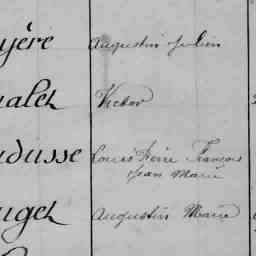 yère Augustin Julien
alet Victor
dusse Louis Pierre François
Jean Marie
uget Augustin Marie